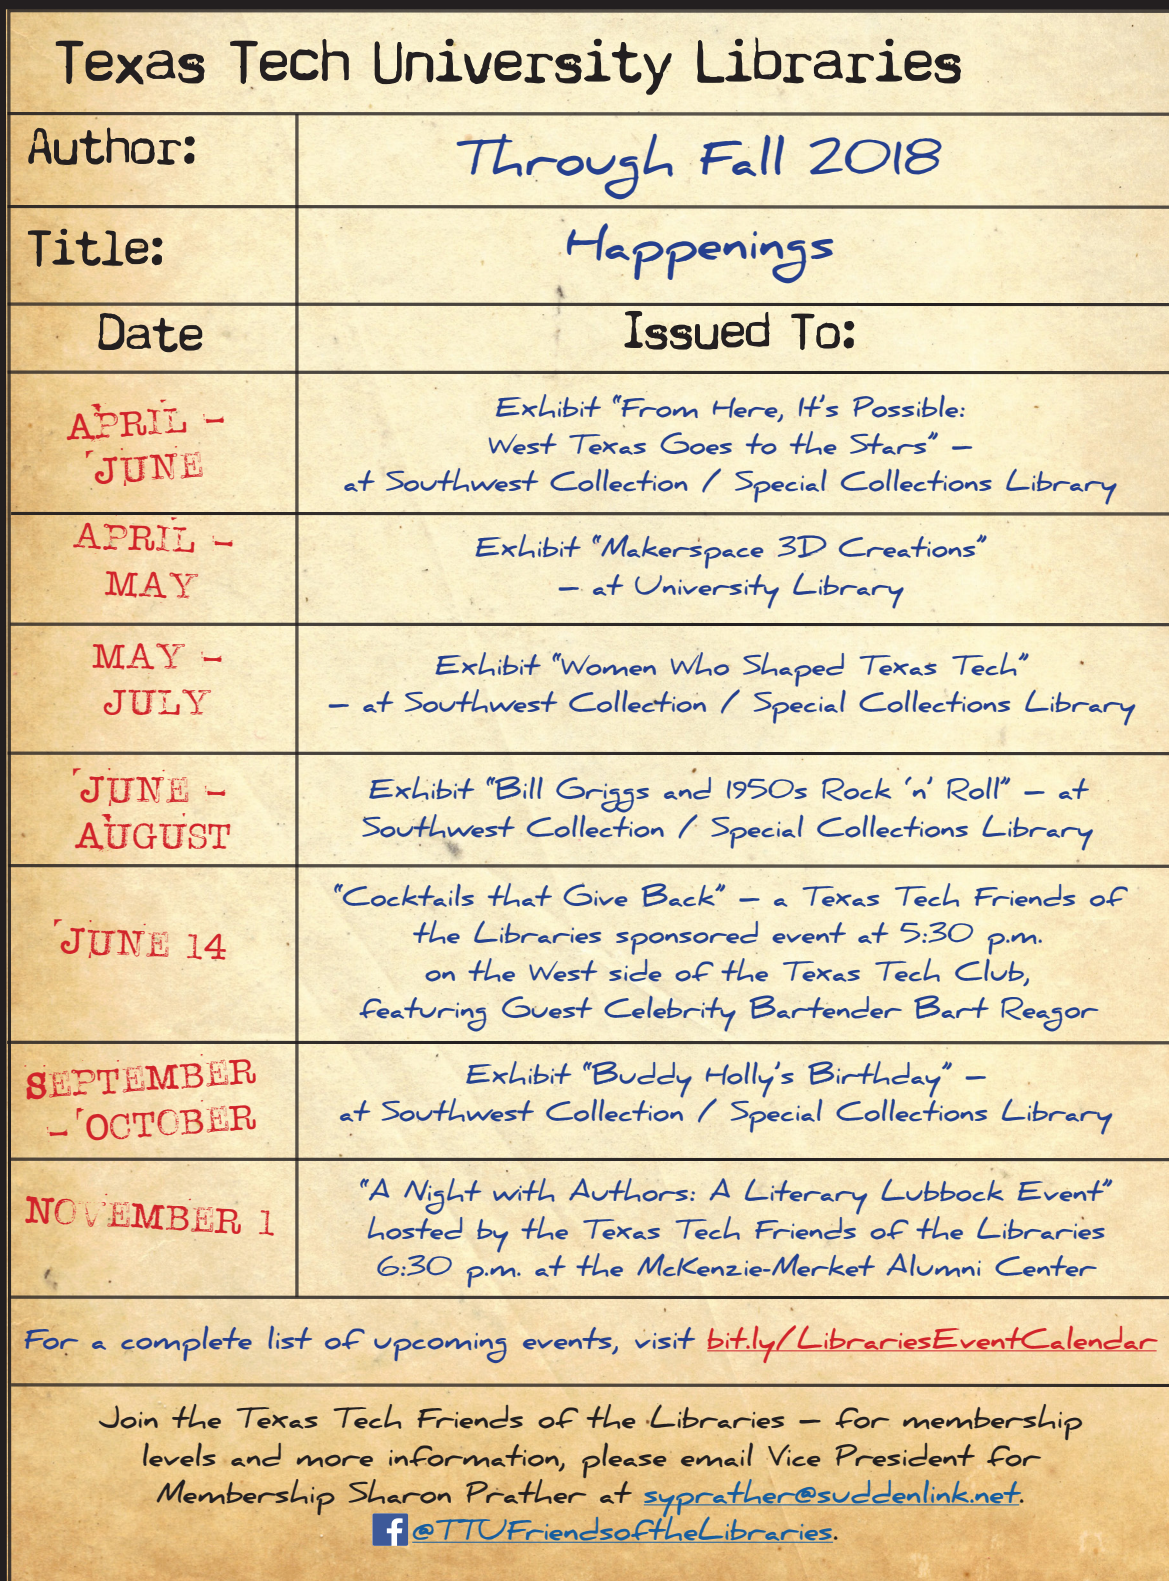 Texas Tech University Libraries
Author:
Through Fall 2018
Title:
Happenings
Date
Issued To:
APRIL –
JUNE
Exhibit “From Here, It’s Possible:
West Texas Goes to the Stars” –
at Southwest Collection / Special Collections Library
APRIL –
MAY
Exhibit “Makerspace 3D Creations”
– at University Library
MAY –
JULY
Exhibit “Women Who Shaped Texas Tech”
– at Southwest Collection / Special Collections Library
JUNE –
AUGUST
Exhibit “Bill Griggs and 1950s Rock ‘n’ Roll” – at
Southwest Collection / Special Collections Library
JUNE 14
“Cocktails that Give Back” – a Texas Tech Friends of
the Libraries sponsored event at 5:30 p.m.
on the West side of the Texas Tech Club,
featuring Guest Celebrity Bartender Bart Reagor
SEPTEMBER
– OCTOBER
Exhibit “Buddy Holly’s Birthday” –
at Southwest Collection / Special Collections Library
NOVEMBER 1
“A Night with Authors: A Literary Lubbock Event”
hosted by the Texas Tech Friends of the Libraries
6:30 p.m. at the McKenzie-Merket Alumni Center
For a complete list of upcoming events, visit bit.ly/LibrariesEventCalendar
Join the Texas Tech Friends of the Libraries – for membership
levels and more information, please email Vice President for
Membership Sharon Prather at syprather@suddenlink.net.
f @TTUFriendsoftheLibraries.